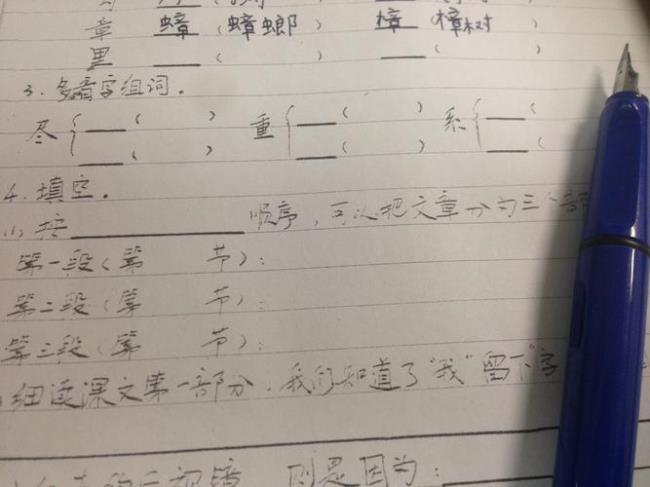 章 蟑（蟑螂） 樟（樟树）
里 （ ） （ ）
3. 多音字组词。
尽 { （ ） 重 { （ ） 系 { （
（ ） （ ） （
4. 填空。
(1) 按 顺序，可以把文章分为三个部
第一段（第 节）：
第二段（第 节）：
第三段（第 节）：
细读课文第一部分，我们知道了"我"留下字
则是因为：